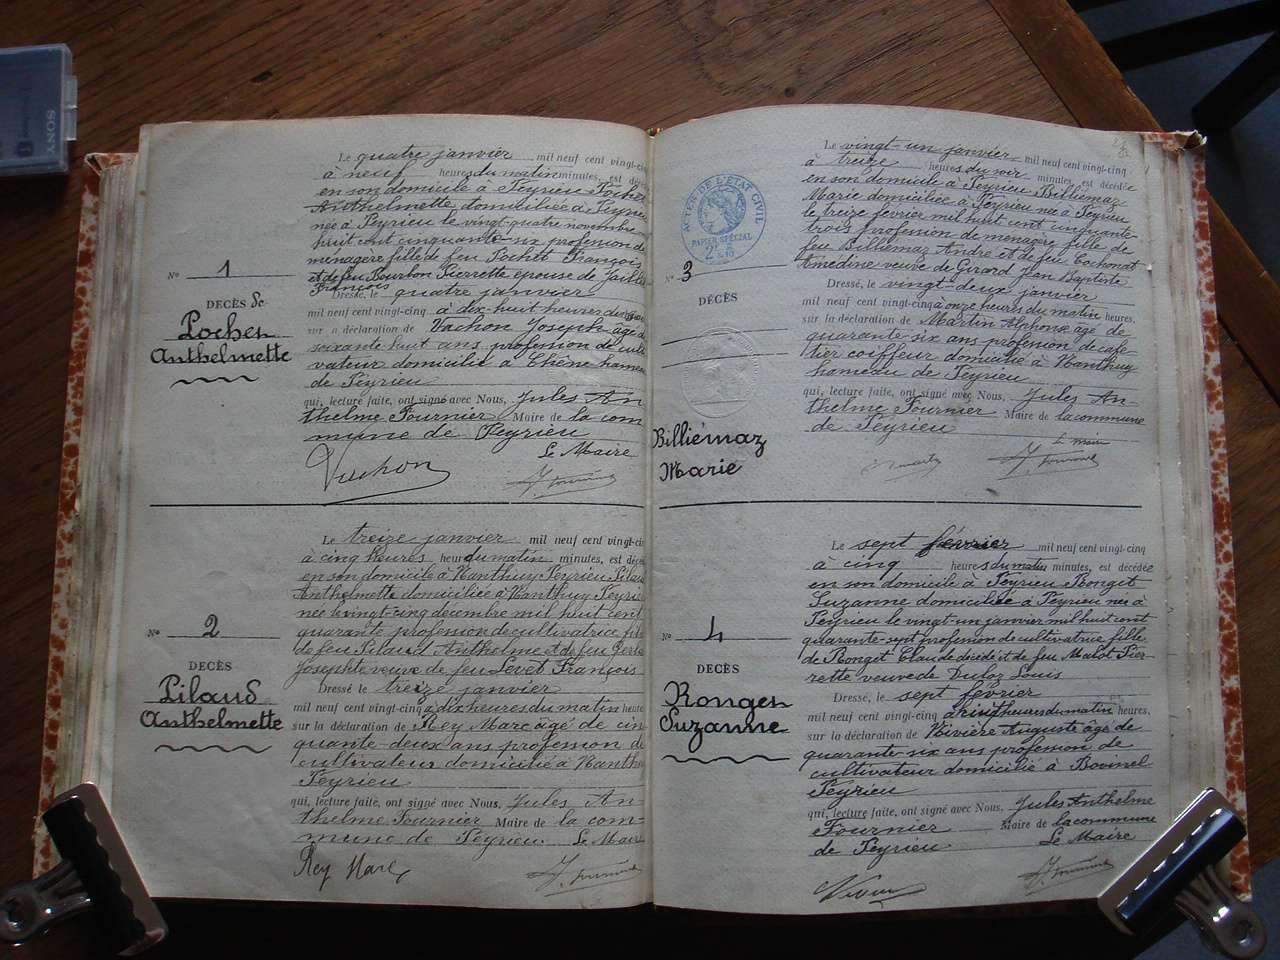 SONY
Le quatre janvier mil neuf cent vingt-cinq
à neuf heures du matin minutes, est décédée
en son domicile à Peyrieu Pochet
Anthelmette domiciliée à Peyrieu
née à Peyrieu le vingt quatre novembre
huit cent cinquante profession de
ménagère fille de feu Pochet François
et de feu Bourbon Pierrette épouse de
François
Dressé, le quatre janvier
mil neuf cent vingt-cinq à dix huit heures du soir
sur la déclaration de Vachon Joseph âgé de
soixante huit ans profession de culti
vateur domicilié à Chêne hameau
de Peyrieu
qui, lecture faite, ont signé avec Nous, Jules An
thelme Fournier Maire de la com
mune de Peyrieu
Le Maire
Vachon J. Fournier
No 1
DÉCÈS de
Pochet
Anthelmette
Le treize janvier mil neuf cent vingt-cinq
à cinq heures heures du matin minutes, est décédée
en son domicile à Nanthuy Peyrieu Pilaud
Anthelmette domiciliée à Nanthuy Peyrieu
née le vingt-cinq décembre mil huit cent
quarante profession de cultivatrice fille
de feu Pilaud Anthelme et de feu
Josephte veuve de feu Levet François
Dressé le treize janvier
mil neuf cent vingt-cinq à dix heures du matin heures
sur la déclaration de Rey Marc âgé de cin
quante-deux ans profession de
cultivateur domicilié à Nanthuy
Peyrieu
qui, lecture faite, ont signé avec Nous, Jules An
thelme Fournier Maire de la com-
mune de Peyrieu. Le Maire
Rey Marc J. Fournier
No 2
DÉCÈS
Pilaud
Anthelmette
ACTES DE L'ÉTAT CIVIL
PAPIER SPÉCIAL
2
Le vingt-un janvier mil neuf cent vingt-cinq
à treize heures du soir minutes est décédée
en son domicile à Peyrieu Billiémaz
Marie domiciliée à Peyrieu née à Peyrieu
le treize février mil huit cent cinquante
trois profession de ménagère fille de
feu Billiemaz André et de feu Cochonat
Amédine veuve de Girard Jean Baptiste
Dressé, le vingt-deux janvier
mil neuf cent vingt-cinq à onze heures du matin heures,
sur la déclaration de Martin Alphonse âgé de
quarante-six ans profession de cafe
tier coiffeur domicilié à Nanthuy
hameau de Peyrieu
qui, lecture faite, ont signé avec Nous, Jules An-
thelme Fournier Maire de la commune
de Peyrieu
Le Maire
J. Fournier
No 3
DÉCÈS
Billiémaz
Marie
Le sept février mil neuf cent vingt-cinq
à cinq heures du matin minutes, est décédée
en son domicile à Peyrieu Ronget
Suzanne domiciliée à Peyrieu née à
Peyrieu le vingt-un janvier mil huit cent
quarante-sept profession de cultivatrice fille
de Ronget Claude décédé et de feu Malot Pier
rette veuve de Louis
Dressé, le sept février
mil neuf cent vingt-cinq à heures du matin heures,
sur la déclaration de Rivière Auguste âgé de
quarante-six ans profession de
cultivateur domicilié à Bovinel
Peyrieu
qui, lecture faite, ont signé avec Nous, Jules Anthelme
Fournier Maire de la commune
de Peyrieu Le Maire
J. Fournier
No 4
DÉCÈS
Ronget
Suzanne